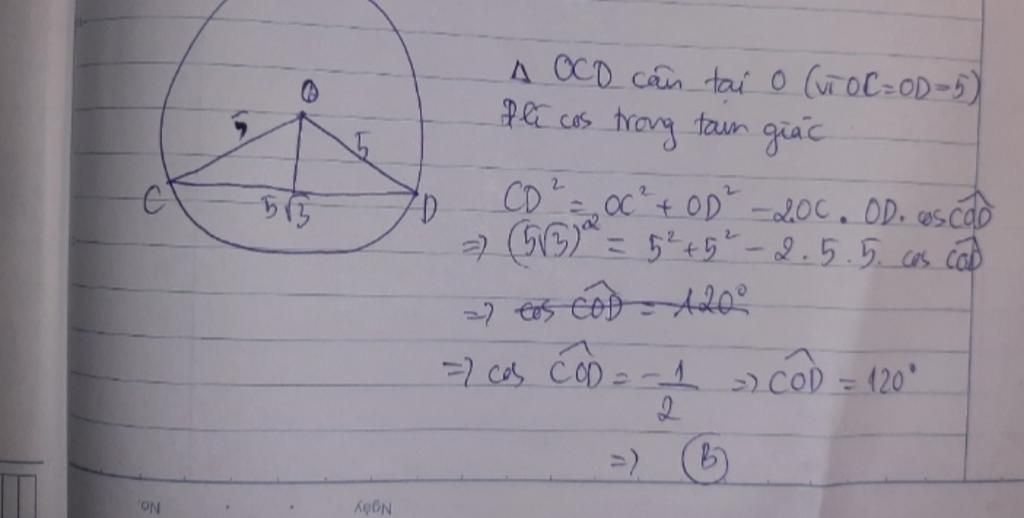 O
5
5
C
5√3
D
Δ OCD cân tại O (vì OC=OD=5)
Đlí cos trong tam giác
CD² = OC² + OD² - 2OC . OD. cos COD
=> (5√3)² = 5² + 5² - 2 . 5 . 5. cos COD
=> cos COD = 120°
=> cos COD = -1/2 => COD = 120°
=> B
No.
Ngày